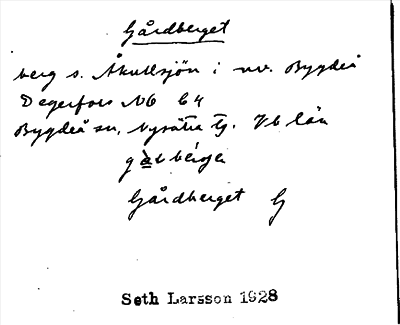 Gårdberget
berg s. Åkullsjön i nv. Bygdeå
Degerfors NO C4
Bygdeå sn, Nysätra tg. Vb län
Gårdberget G
Seth Larsson 1928